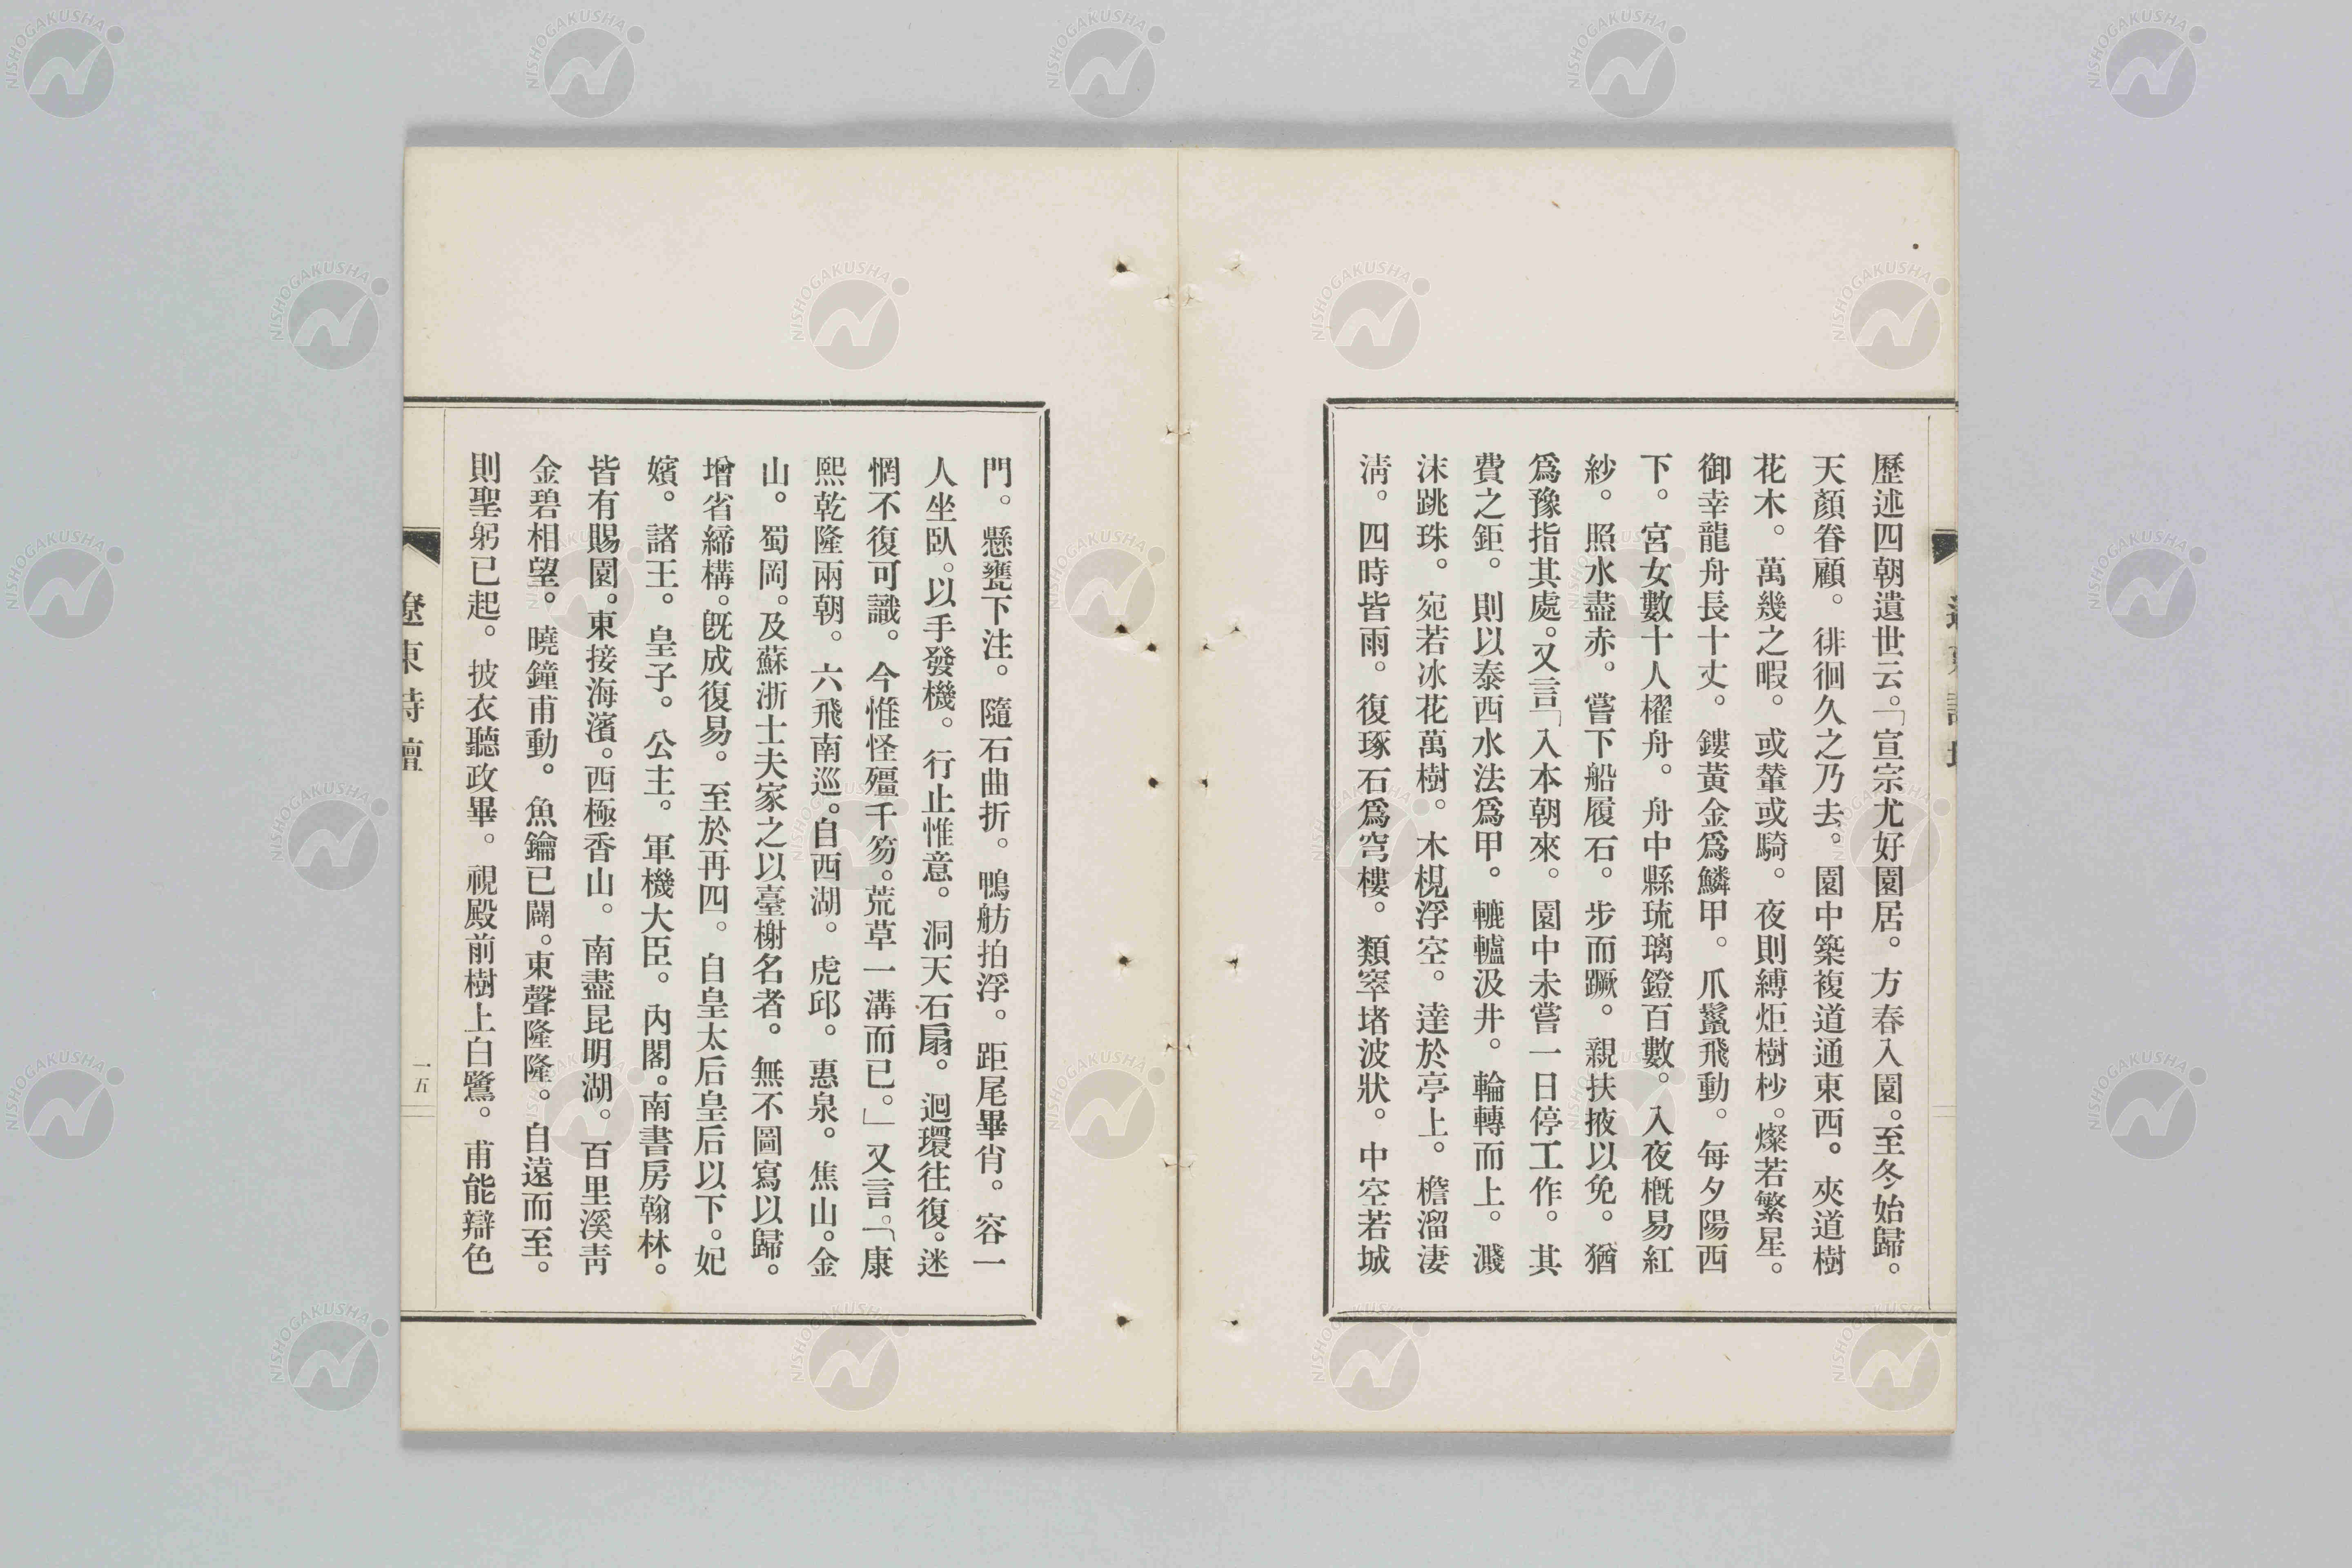 歷述四朝遺世云。「宣宗尤好園居。方春入園。至冬始歸。
天顏眷顧。徘徊久之乃去。園中築複道通東西。夾道樹
花木。萬幾之暇。或輦或騎。夜則縛炬樹杪。燦若繁星。
御幸龍舟長十丈。鏤黃金爲鱗甲。爪鬣飛動。每夕陽西
下。宮女數十人櫂舟。舟中縣琉璃鐙百數。入夜槪易紅
紗。照水盡赤。嘗下船履石。步而蹶。親扶掖以免。猶
爲豫指其處。又言「入本朝來。園中未嘗一日停工作。其
費之鉅。則以泰西水法爲甲。轆轤汲井。輪轉而上。濺
沫跳珠。宛若冰花萬樹。木梘浮空。達於亭上。檐溜淒
淸。四時皆雨。復琢石爲穹樓。類窣堵波狀。中空若城
門。懸甕下注。隨石曲折。鴨舫拍浮。距尾畢肖。容一
人坐臥。以手發機。行止惟意。洞天石扇。迴環往復。迷
惘不復可識。今惟怪殭千笏。荒草一溝而已。」又言。「康
熙乾隆兩朝。六飛南巡。自西湖。虎邱。惠泉。焦山。金
山。蜀岡。及蘇浙士夫家之以臺榭名者。無不圖寫以歸。
增省締構。旣成復易。至於再四。自皇太后皇后以下。妃
嬪。諸王。皇子。公主。軍機大臣。內閣。南書房翰林。
皆有賜園。東接海濱。西極香山。南盡昆明湖。百里溪靑
金碧相望。曉鐘甫動。魚鑰已闢。東聲隆隆。自遠而至。
則聖躬已起。披衣聽政畢。視殿前樹上白鷺。甫能辯色
遼東詩壇
一五
NISHOGAKUSHA